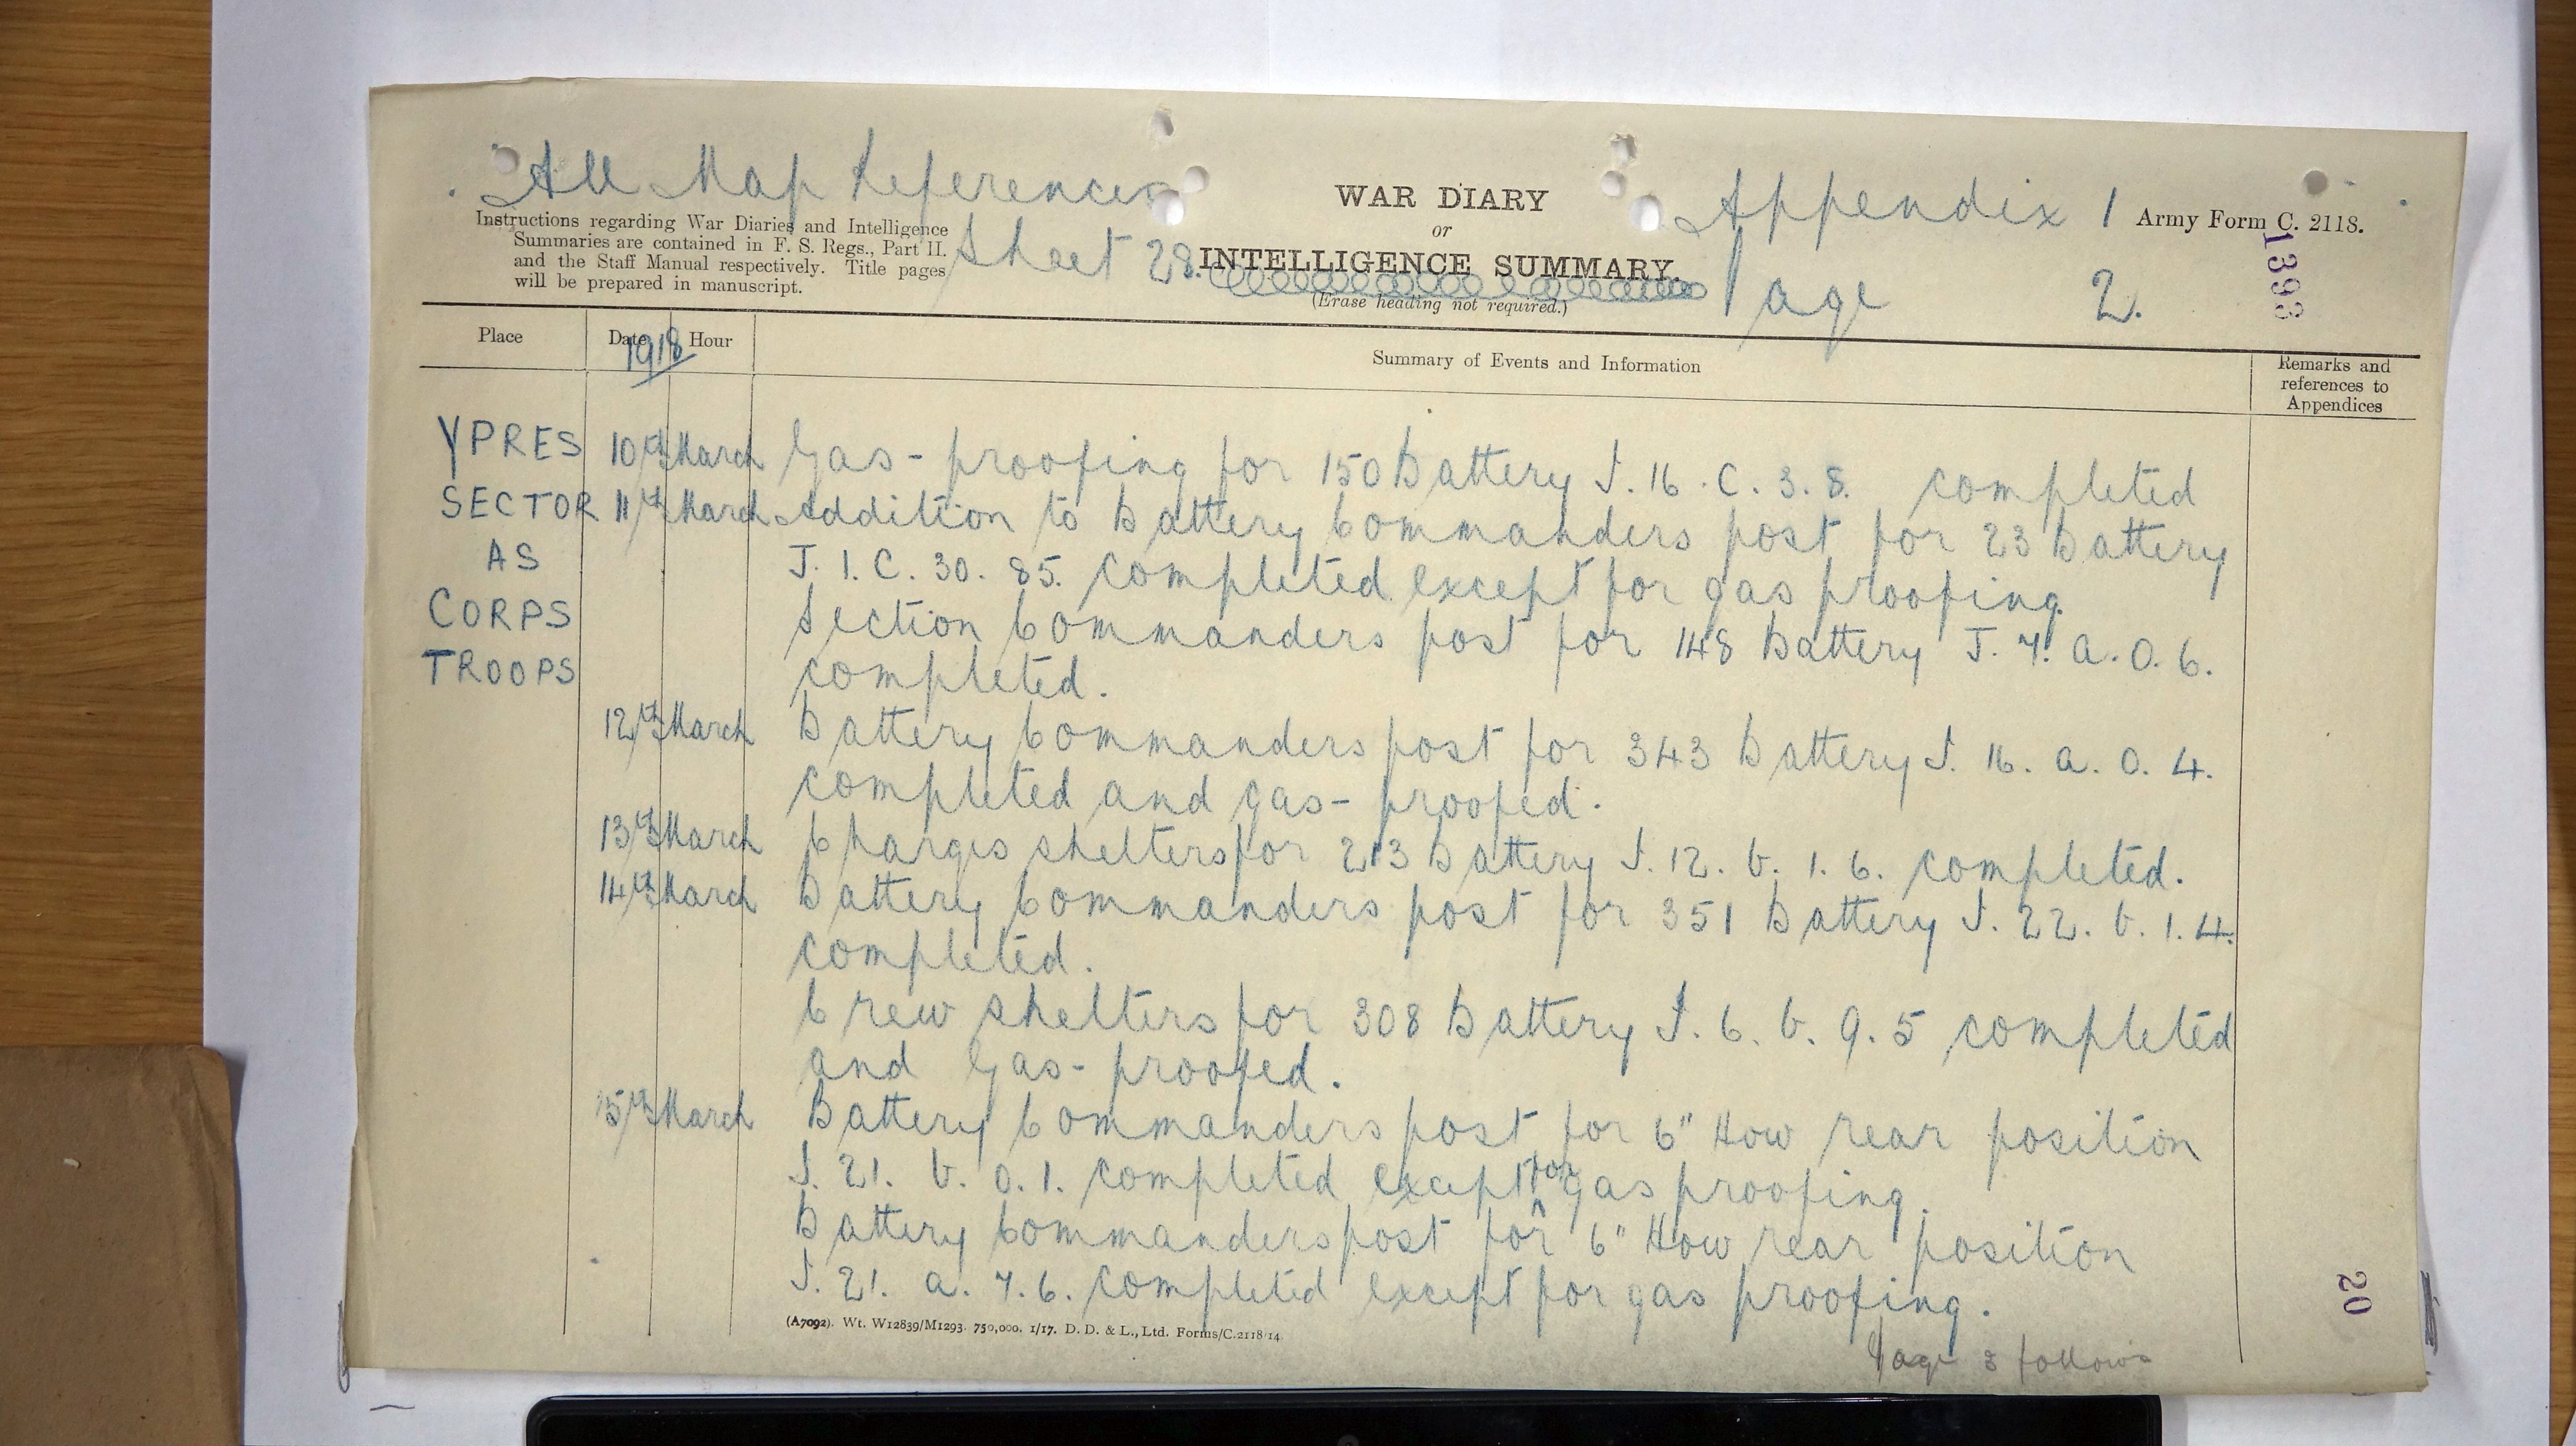 All Map References
Sheet 28.
Appendix 1
Page 2.
Army Form C. 2118.
1393
WAR DIARY
or
INTELLIGENCE SUMMARY.
(Erase heading not required.)
Instructions regarding War Diaries and Intelligence
Summaries are contained in F. S. Regs., Part II.
and the Staff Manual respectively. Title pages
will be prepared in manuscript.
Place Date Hour Summary of Events and Information Remarks and references to Appendices
1918
YPRES 10th March Gas-proofing for 150 Battery J. 16. C. 3. 8. completed
SECTOR 11th March Addition to Battery Commanders post for 23 Battery
AS J. 1. C. 30. 85. completed except for gas proofing.
CORPS Section Commanders post for 148 Battery J. 7. a. 0. 6.
TROOPS completed.
12th March Battery Commanders post for 343 Battery J. 16. a. 0. 4.
completed and gas-proofed.
13th March Charges shelters for 213 Battery J. 12. b. 1. 6. completed.
14th March Battery Commanders post for 351 Battery J. 22. b. 1. 4.
completed.
Crew shelters for 308 Battery J. 6. b. 9. 5 completed
and Gas-proofed.
15th March Battery Commanders post for 6" How rear position
J. 21. b. 0. 1. completed except for gas proofing.
Battery Commanders post for 6" How rear position
J. 21. a. 7. 6. completed except for gas proofing.
(A7092). Wt. W12839/M1293. 750,000. 1/17. D. D. & L., Ltd. Forms/C.2118/14.
Page 3 follows
20